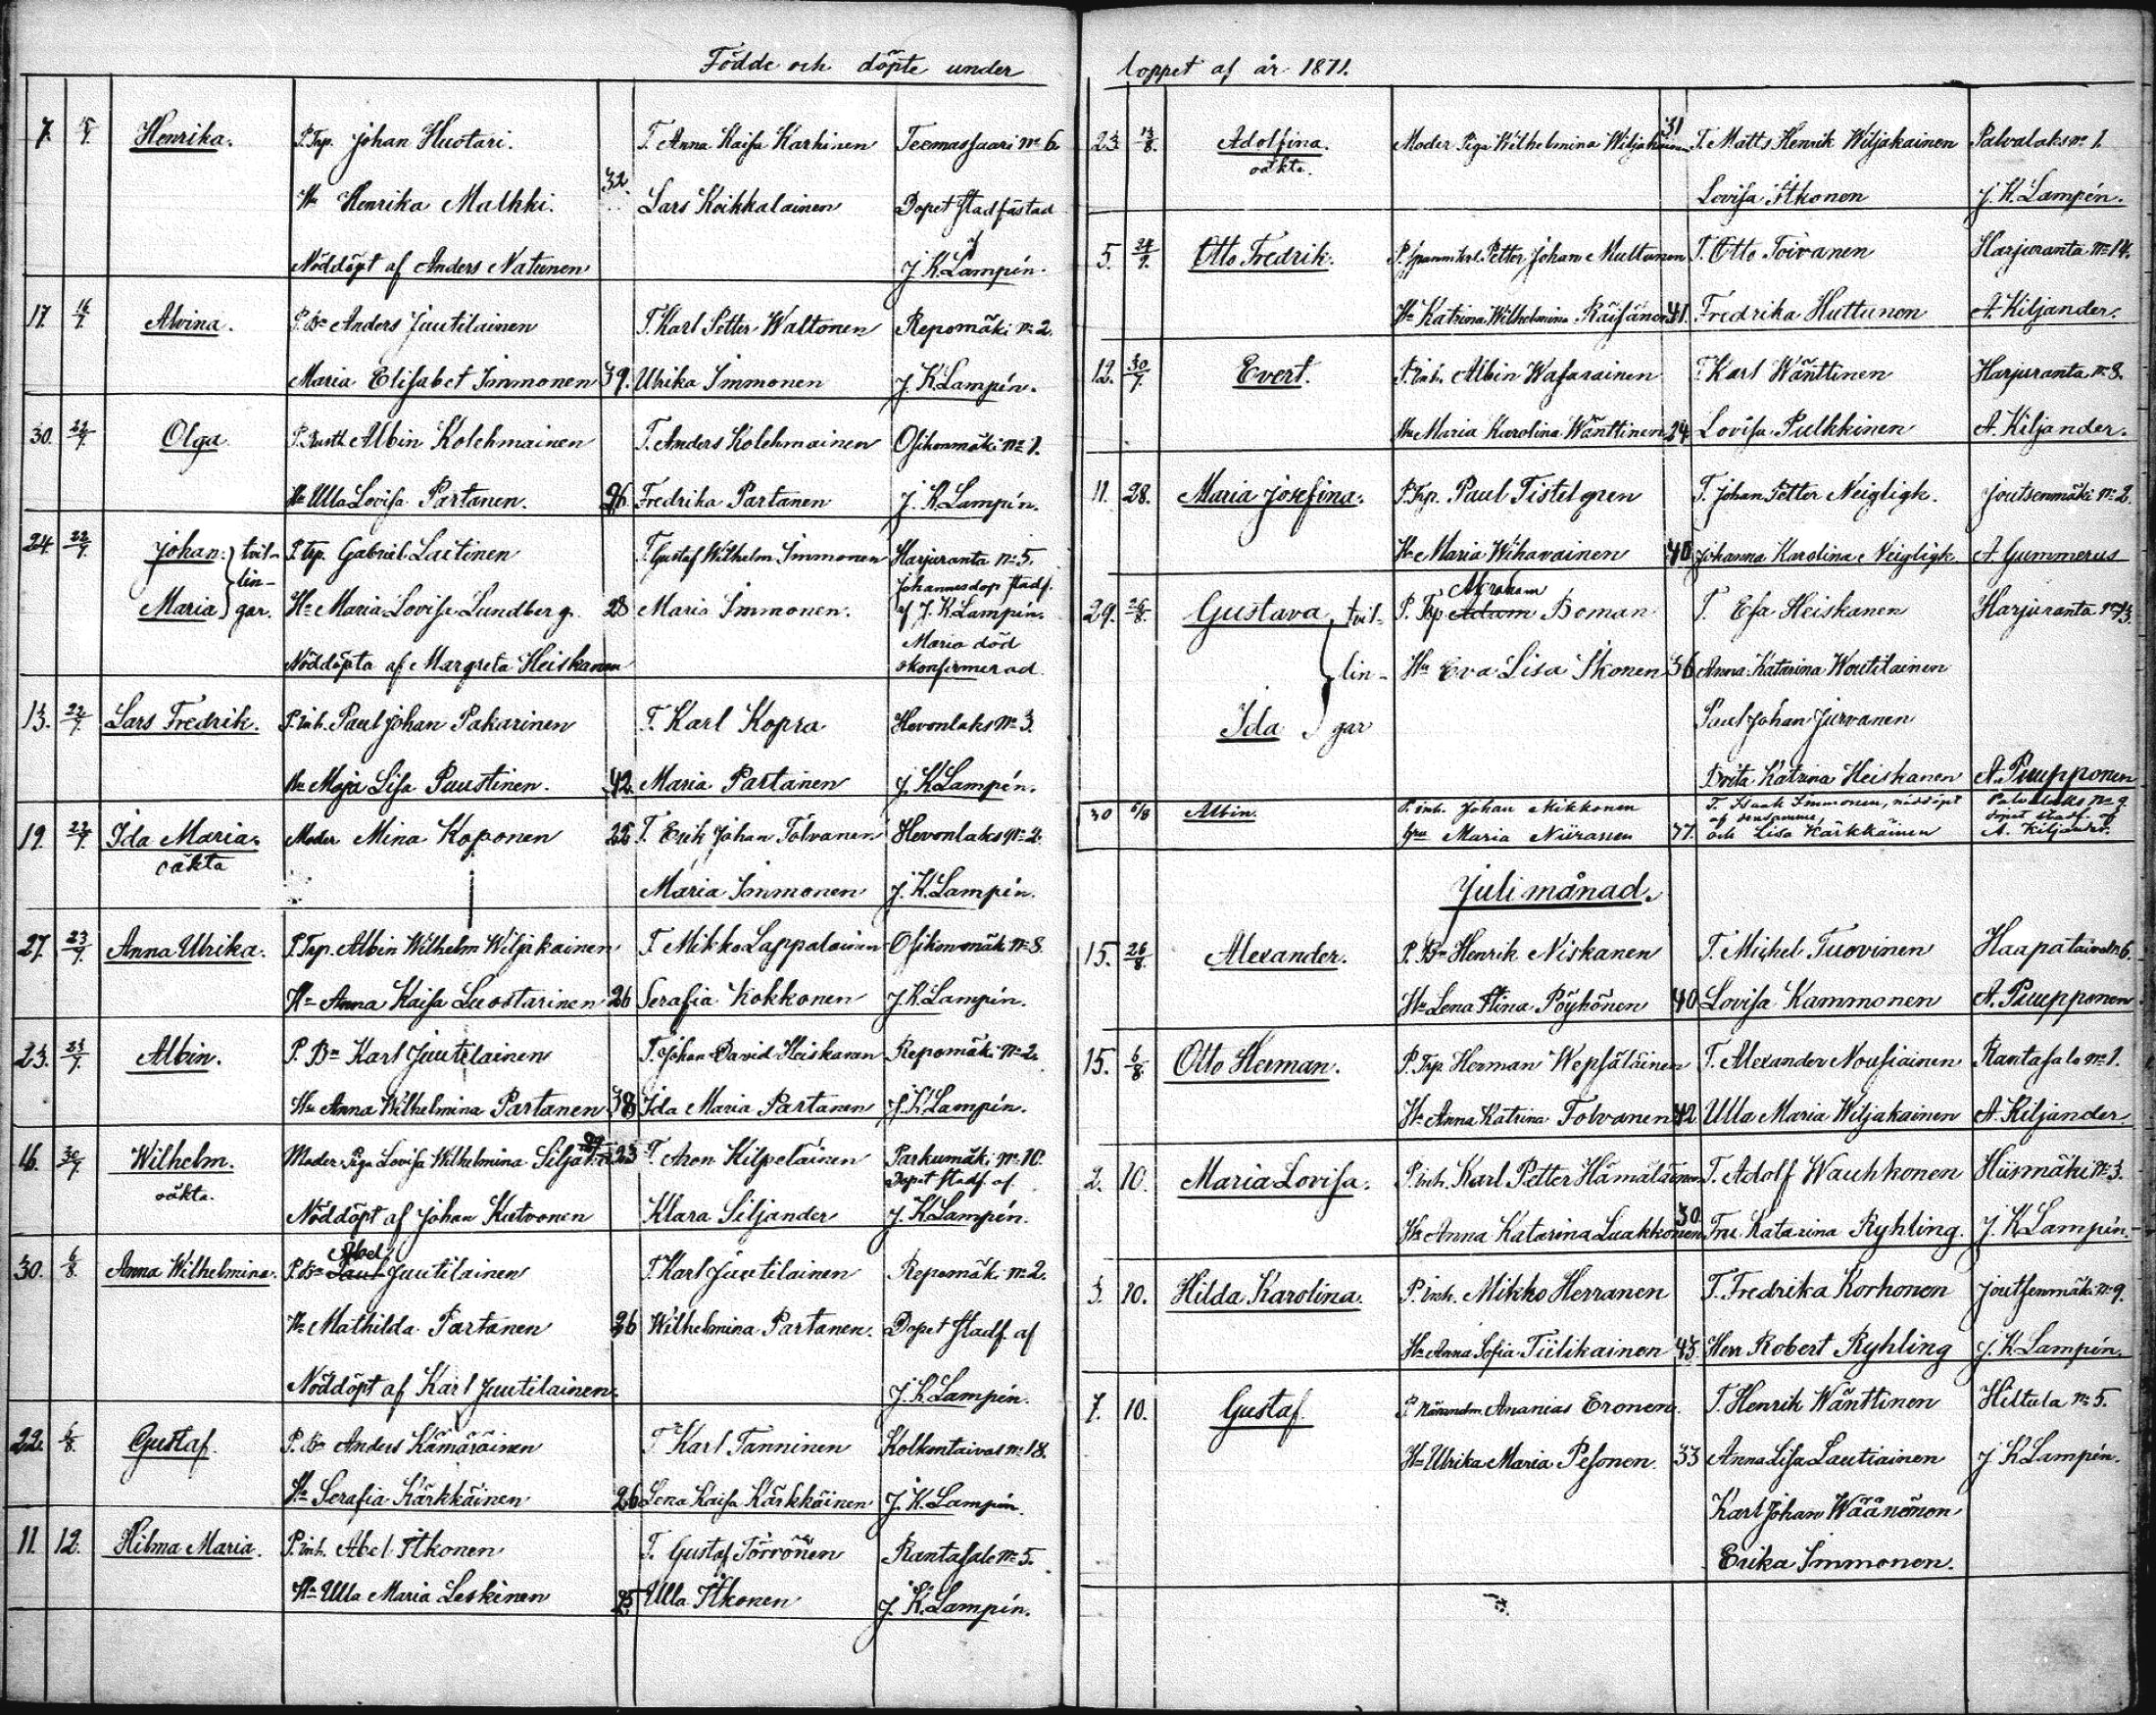 Födde och döpte under
7. 15/7. Henrika. P. Trp. Johan Huotari. T. Anna Kaisa Karhinen Teemassaari No 6.
Hu Henrika Malkki. 32. Lars Koikkalainen Dopet stadfästad
Nöddöpt af Anders Natunen af J. K. Lampén.
17. 16/7. Alvina. P. Bn Anders Juutilainen T. Karl Petter Waltonen Repomäki No 2.
Maria Elisabet Immonen 39. Ulrika Immonen J. K. Lampén.
30. 22/7. Olga P. Rusth Albin Kolehmainen T. Anders Kolehmainen Osikonmäki No 1.
Hu Ulla Lovisa Partanen. 26 Fredrika Partanen J. K. Lampén.
24. 22/7. Johan tvil- P. Trp. Gabriel Laitinen T. Gustaf Wilhelm Immonen Harjuranta No 5.
lin- Johannes dop stadf.
Maria gar. Hu Maria Lovisa Lundberg. 28 Maria Immonen. af J. K. Lampén.
Maria död
Nöddöpta af Margreta Heiskanen okonfirmerad.
13. 22/7. Lars Fredrik. P. inh. Paul Johan Pakarinen T. Karl Kopra Hevonlaks No 3.
Hu Maja Lisa Puustinen. 42. Maria Partanen J. K. Lampén.
19. 22/7. Ida Maria. Moder Mina Koponen 22 T. Erik Johan Tolvanen Hevonlaks No 2.
oäkta Maria Immonen J. K. Lampén.
27. 23/7. Anna Ulrika. P. Trp. Albin Wilhelm Wiljakainen T. Mikko Lappalainen Osikonmäki No 8.
Hu Anna Kaisa Luostarinen 26 Serafia Kokkonen J. K. Lampén.
23. 23/7. Albin. P. Bn Karl Juutilainen T. Johan David Heiskanen Repomäki No 2.
Hu Anna Wilhelmina Partanen 38 Ida Maria Partanen J. K. Lampén.
16. 30/7 Wilhelm. Moder Piga Lovisa Wilhelmina 23 T. Aron Kilpeläinen Parkumäki No 10.
oäkta. Dopet stadf. af
Nöddöpt af Johan Kutvonen Klara Siljander J. K. Lampén.
Abel
30. 6/8. Anna Wilhelmina. P. Bn Paul Juutilainen T. Karl Juutilainen Repomäki No 2.
Hu Mathilda Partanen 26 Wilhelmina Partanen. Dopet stadf. af
Nöddöpt af Karl Juutilainen. J. K. Lampén.
22. 6/8. Gustaf P. Bn Anders Kämäräinen T. Karl Tanninen Kolkontaivas No 18.
Hu Serafia Kärkkäinen 26 Lena Kaisa Kärkkäinen J. K. Lampén
11. 12. Hilma Maria. P. inh. Abel Itkonen T. Gustaf Törrönen Rantasalo No 5.
Hu Ulla Maria Leskinen 25 Ulla Itkonen J. K. Lampén.
loppet af år 1871.
23. 13/8. Adolfina. Moder Piga Wilhelmina Wiljakainen 31 T. Matts Henrik Wiljakainen Palvalaks No 1.
oäkta. Lovisa Itkonen J. K. Lampén.
5. 24/9. Otto Fredrik. Petter Johan Multunen T. Otto Toivanen Harjuranta No 14.
Hu Katrina Wilhelmina Räisänen 41. Fredrika Huttunen A. Kiljander.
12. 30/7. Evert. P. inh. Albin Wasarainen T. Karl Wänttinen Harjuranta No 8.
Hu Maria Karolina Wänttinen 24 Lovisa Pulkkinen A. Kiljander.
11. 28. Maria Josefina. P. Trp. Paul Tistelgren T. Johan Petter Neigligk. Joutsenmäki No 2
Hu Maria Wihavainen 40 Johanna Karolina Neigligk. A. Gummerus
Abraham
29. 26/8. Gustava tvil- P. Trp Adam Boman T. Esa Heiskanen Harjuranta No 13.
lin- Hu Eva Lisa Ikonen 36 Anna Katarina Woutilainen
Ida gar Paul Johan Jurvanen
Brita Katrina Heiskanen A. Puupponen
30 6/8 Albin. P. inh. Johan Mikkonen T. Isaak Immonen, nöddöpt Palvalaks No 9.
af densamme, dopet stadf. af
Hru Maria Niiranen 37. och Lisa Kärkkäinen A. Kiljander.
Juli månad.
15. 26/8. Alexander. P. Bn Henrik Niskanen T. Michel Tuovinen Haapataival No 6.
Hu Lena Stina Pöyhönen 40 Lovisa Kammonen A. Puupponen
15. 6/8. Otto Herman. P. Trp. Herman Wepsäläinen T. Alexander Nousiainen Rantasalo No 1.
Hu Anna Katrina Tolvanen 42 Ulla Maria Wiljakainen A. Kiljander.
2. 10. Maria Lovisa. P. inh. Karl Petter Hämäläinen T. Adolf Wauhkonen Hiismäki No 3.
Hu Anna Katarina Luukkonen 30 Fru Katarina Ryhling. J. K. Lampén.
3. 10. Hilda Karolina. P. inh. Mikko Herranen T. Fredrika Korhonen Joutsenmäki No 9.
Hu Anna Sofia Tiilikainen 43 Herr Robert Ryhling J. K. Lampén.
7. 10. Gustaf. P. Ananias Eronen. T. Henrik Wänttinen Hiltula No 5.
Hu Ulrika Maria Pesonen. 33 Anna Lisa Lautiainen J. K. Lampén.
Karl Johan Wäänänen
Erika Immonen.